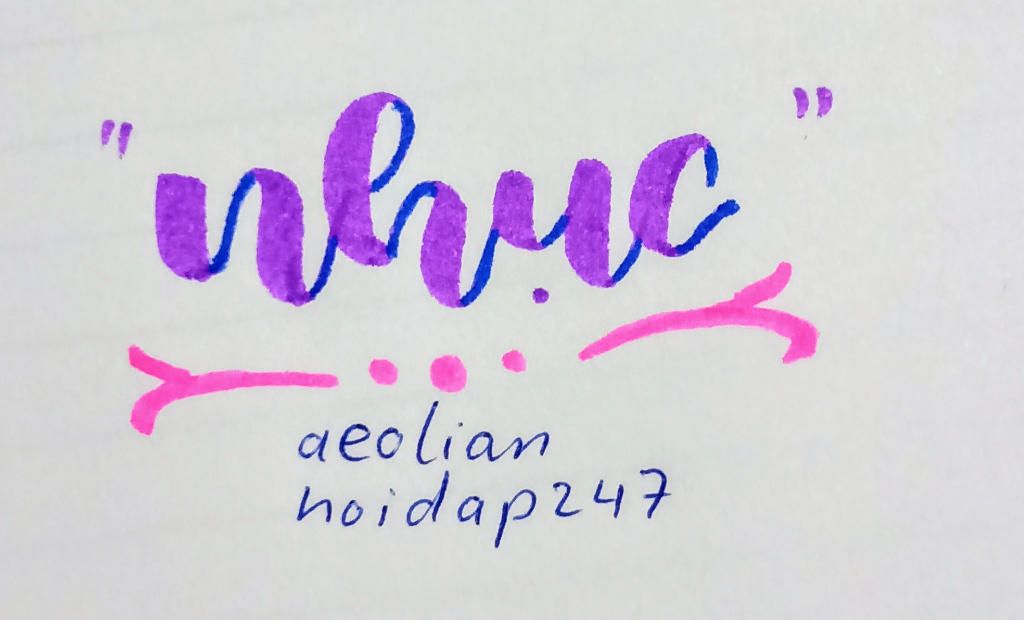 "nhục"
aeolian
hoidap247